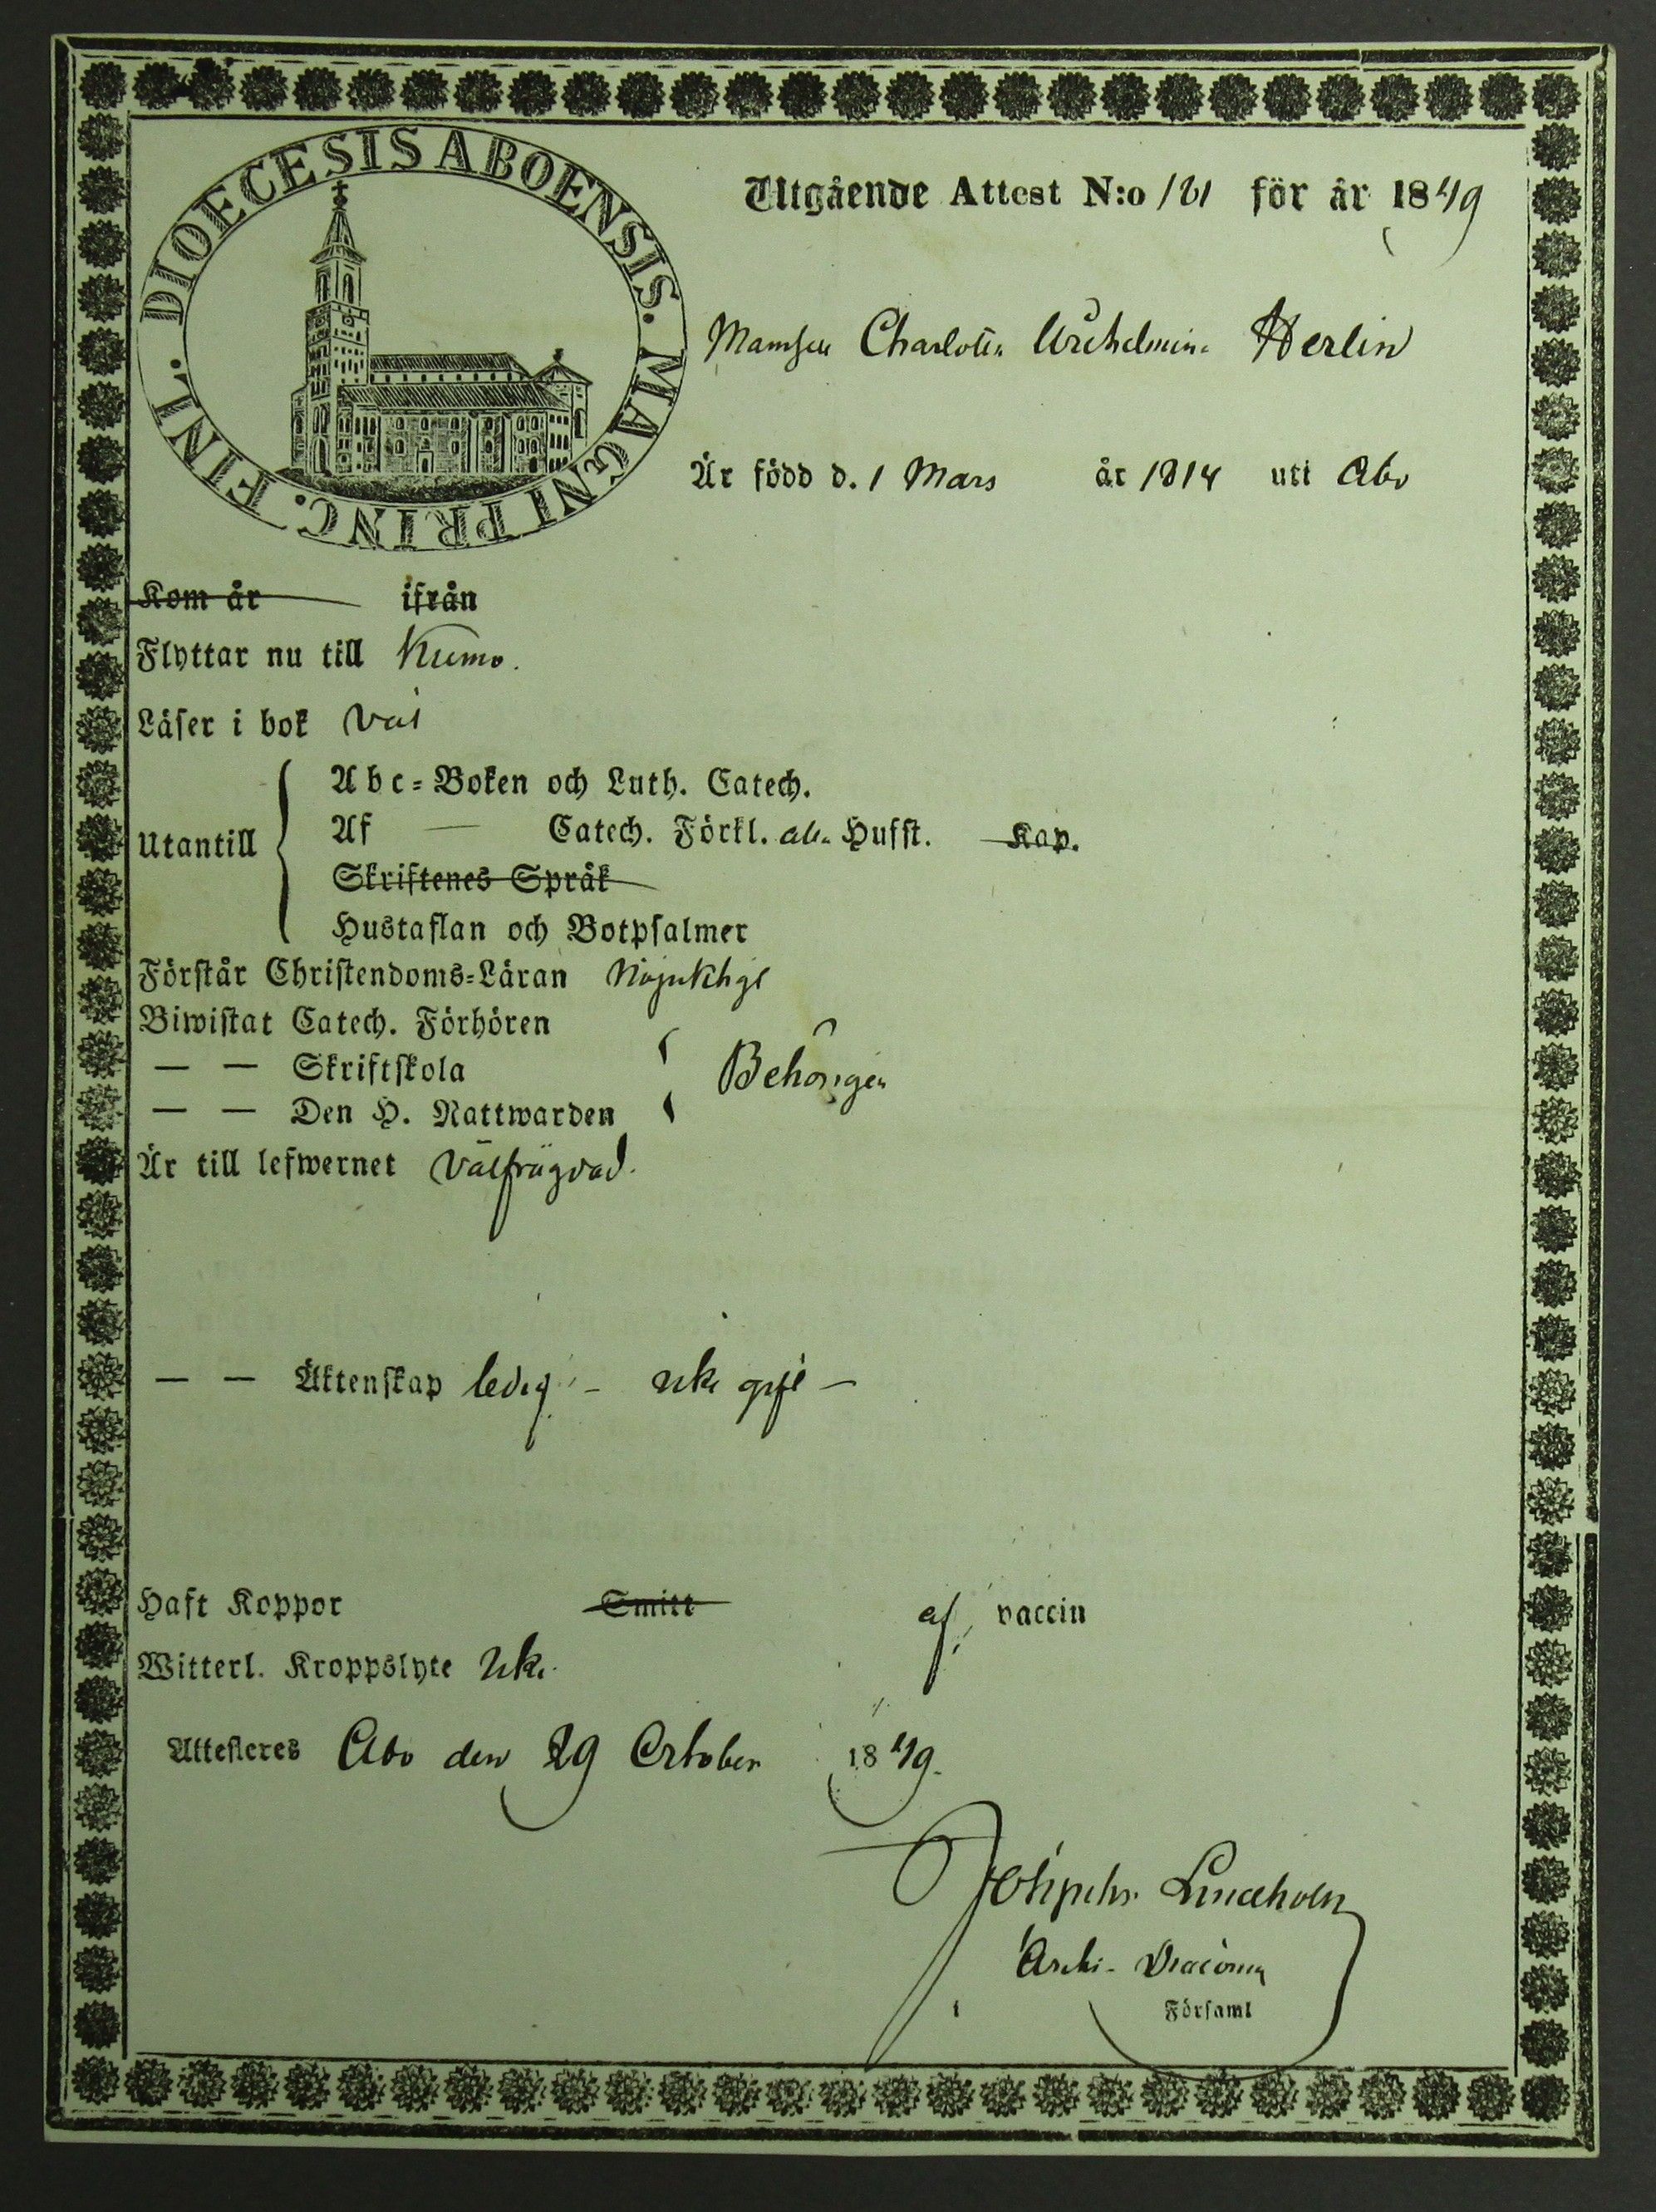 DIOECESIS ABOENSIS. MAGNI PRINC. FINL.
Utgående Attest N:o 121 för år 1849
Mamsell Charlotta Wilhelmina Herlin
Är född d. 1 Mars år 1814 uti Åbo
Kom år ifrån
Flyttar nu till Kumo.
Läser i bok väl
Utantill
Abc-Boken och Luth. Catech.
Af — Catech. Förkl. alla Hufst. Kap.
Skriftenes Språk
Hustaflan och Botpsalmer
Förstår Christendoms-Läran Nöjaktigt
Biwistat Catech. Förhören
— — Skriftskola
— — Den H. Nattwarden
Behörigen
Är till lefwernet välfrägdad.
— — Äktenskap ledig - icke gift -
Haft Koppor Smitt af vaccin
Witterl. Kroppslyte icke.
Attesteres Åbo den 29 October 1849.
Lindholm
Archi-Diaconus
i Församl